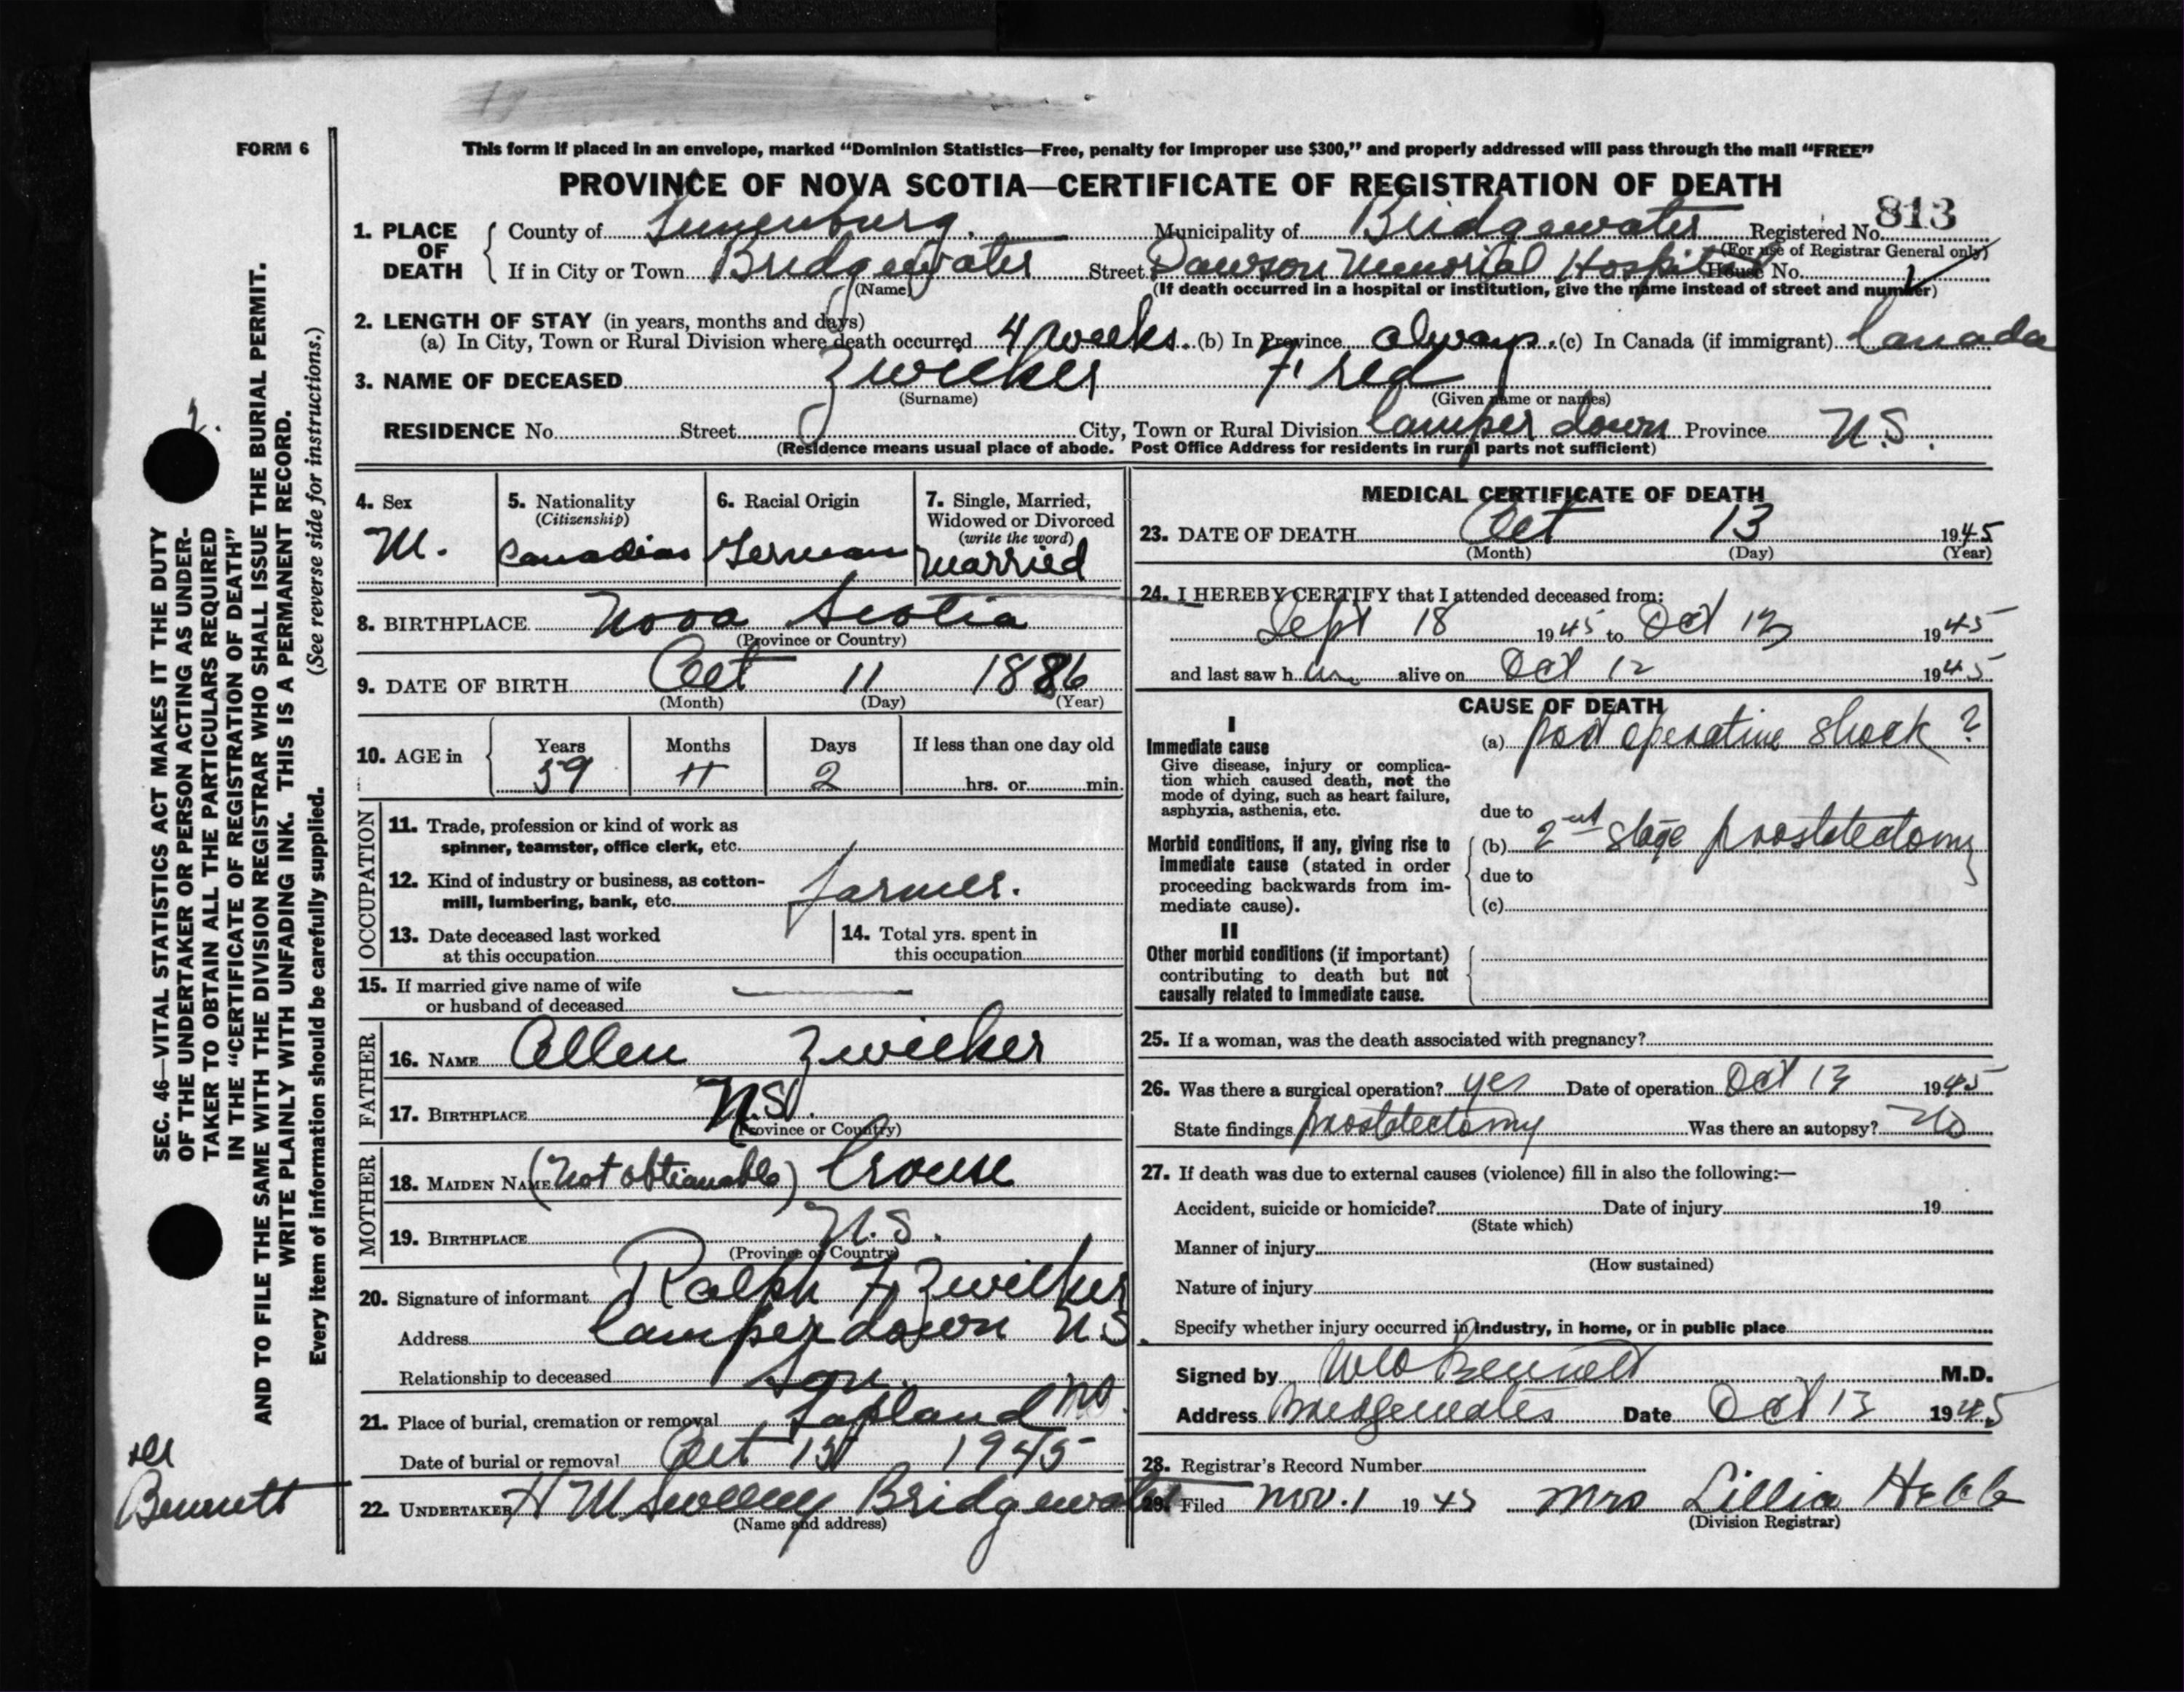 FORM 6
This form if placed in an envelope, marked “Dominion Statistics—Free, penalty for improper use $300,” and properly addressed will pass through the mail “FREE”
PROVINCE OF NOVA SCOTIA—CERTIFICATE OF REGISTRATION OF DEATH
813
1. PLACE OF DEATH County of Lunenburg. Municipality of Bridgewater Registered No.
(For use of Registrar General only)
If in City or Town Bridgewater Street Dawson Memorial Hospital House No.
(Name) (If death occurred in a hospital or institution, give the name instead of street and number)
2. LENGTH OF STAY (in years, months and days)
(a) In City, Town or Rural Division where death occurred 4 weeks. (b) In Province always. (c) In Canada (if immigrant) Canada
3. NAME OF DECEASED Zwicker Fred
(Surname) (Given name or names)
RESIDENCE No. Street City, Town or Rural Division Camperdown Province N.S.
(Residence means usual place of abode. Post Office Address for residents in rural parts not sufficient)
4. Sex M.
5. Nationality (Citizenship) Canadian
6. Racial Origin German
7. Single, Married, Widowed or Divorced (write the word) Married
8. BIRTHPLACE Nova Scotia
(Province or Country)
9. DATE OF BIRTH Oct 11 1886
(Month) (Day) (Year)
10. AGE in Years 59 Months Days 2 If less than one day old hrs. or min.
OCCUPATION
11. Trade, profession or kind of work as
spinner, teamster, office clerk, etc.
12. Kind of industry or business, as cotton-
mill, lumbering, bank, etc. farmer.
13. Date deceased last worked
at this occupation
14. Total yrs. spent in
this occupation
15. If married give name of wife
or husband of deceased
FATHER
16. NAME Allen Zwicker
17. BIRTHPLACE N.S.
(Province or Country)
MOTHER
18. MAIDEN NAME (not obtianable) Crouse
19. BIRTHPLACE N.S.
(Province or Country)
20. Signature of informant Ralph F. Zwicker
Address Camperdown N.S.
Relationship to deceased Son.
21. Place of burial, cremation or removal Lapland NS.
Date of burial or removal Oct 1945
22. UNDERTAKER H M Sweeny Bridgewater
(Name and address)
MEDICAL CERTIFICATE OF DEATH
23. DATE OF DEATH Oct 13 1945
(Month) (Day) (Year)
24. I HEREBY CERTIFY that I attended deceased from:
Sept 18 1945 to Oct 13 1945
and last saw h im alive on Oct 12 1945
CAUSE OF DEATH
I
Immediate cause
Give disease, injury or complica-
tion which caused death, not the
mode of dying, such as heart failure,
asphyxia, asthenia, etc.
(a) post operative shock ?
due to
Morbid conditions, if any, giving rise to
immediate cause (stated in order
proceeding backwards from im-
mediate cause).
(b) 2nd stage prostatectomy
due to
(c)
II
Other morbid conditions (if important)
contributing to death but not
causally related to immediate cause.
25. If a woman, was the death associated with pregnancy?
26. Was there a surgical operation? yes Date of operation Oct 13 1945
State findings prostatectomy Was there an autopsy? No
27. If death was due to external causes (violence) fill in also the following:—
Accident, suicide or homicide? Date of injury 19
(State which)
Manner of injury
(How sustained)
Nature of injury
Specify whether injury occurred in industry, in home, or in public place
Signed by Bennett M.D.
Address Bridgewater Date Oct 13 1945
28. Registrar's Record Number
29. Filed Nov. 1 1945 Mrs Lillia Hebb
(Division Registrar)
SEC. 46—VITAL STATISTICS ACT MAKES IT THE DUTY
OF THE UNDERTAKER OR PERSON ACTING AS UNDER-
TAKER TO OBTAIN ALL THE PARTICULARS REQUIRED
IN THE “CERTIFICATE OF REGISTRATION OF DEATH”
AND TO FILE THE SAME WITH THE DIVISION REGISTRAR WHO SHALL ISSUE THE BURIAL PERMIT.
WRITE PLAINLY WITH UNFADING INK. THIS IS A PERMANENT RECORD.
Every item of information should be carefully supplied. (See reverse side for instructions.)
Bennett